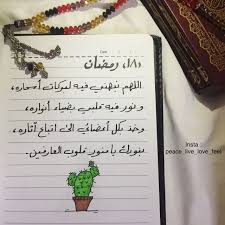 Date
(١٨) رمضان
اللهم نبّهني فيه لبركات أسحاره،
و نوّر فيه قلبي بضياء أنواره،
وخذ بكل أعضائي الى اتباع آثاره،
بنورك يا منوّر قلوب العارفين.
Insta
peace_live_love_feel